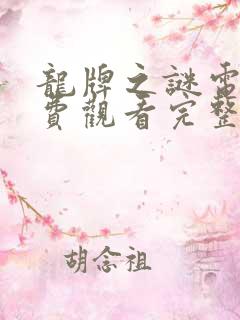 龍牌之謎電
費觀看完整
胡念祖